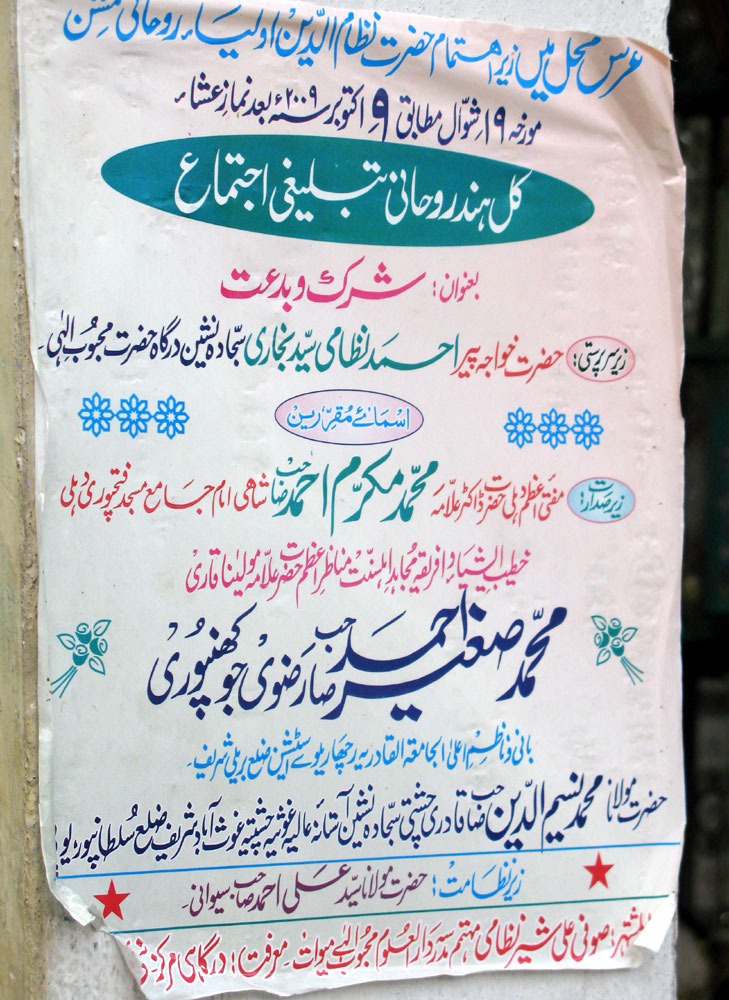 عرس محل میں زیر اھتمام حضرت نظام الدین اولیاء روحانی مشن
مورخہ ۱۹ شوال مطابق ۹ اکتوبر سنہ ۲۰۰۹ء بعد نماز عشاء
کل ہند روحانی تبلیغی اجتماع
بعنوان: شرک و بدعت
زیر سرپرستی: حضرت خواجہ پیر احمد نظامی سید بخاری سجادہ نشین درگاہ حضرت محبوب الٰہی۔
اسمائے مقررین
زیر صدارت: مفتی اعظم دہلی حضرت ڈاکٹر علامہ محمد مکرم احمد صاحب شاھی امام جامع مسجد فتحپوری دہلی
خطیب ایشیاء و افریقہ مجاہد اہلسنت مناظر اعظم حضرت علامہ مولینا قاری
محمد صغیر احمد صاحب رضوی جوکھنپوری
بانی و ناظم اعلیٰ الجامعۃ القادریہ رچھا ریلوے اسٹیشن ضلع بریلی شریف۔
حضرت مولانا محمد نسیم الدین صاحب قادری چشتی سجادہ نشین آستانہ عالیہ غوثیہ چشتیہ غوث آباد شریف ضلع سلطانپور یو
زیر نظامت: حضرت مولانا سید علی احمد صاحب سیوانی۔
المشتہر: صوفی علی شیر نظامی مہتمم مدرسہ دارالعلوم محبوب الٰہی میوات۔ معرفت: درگاہی مرکزی